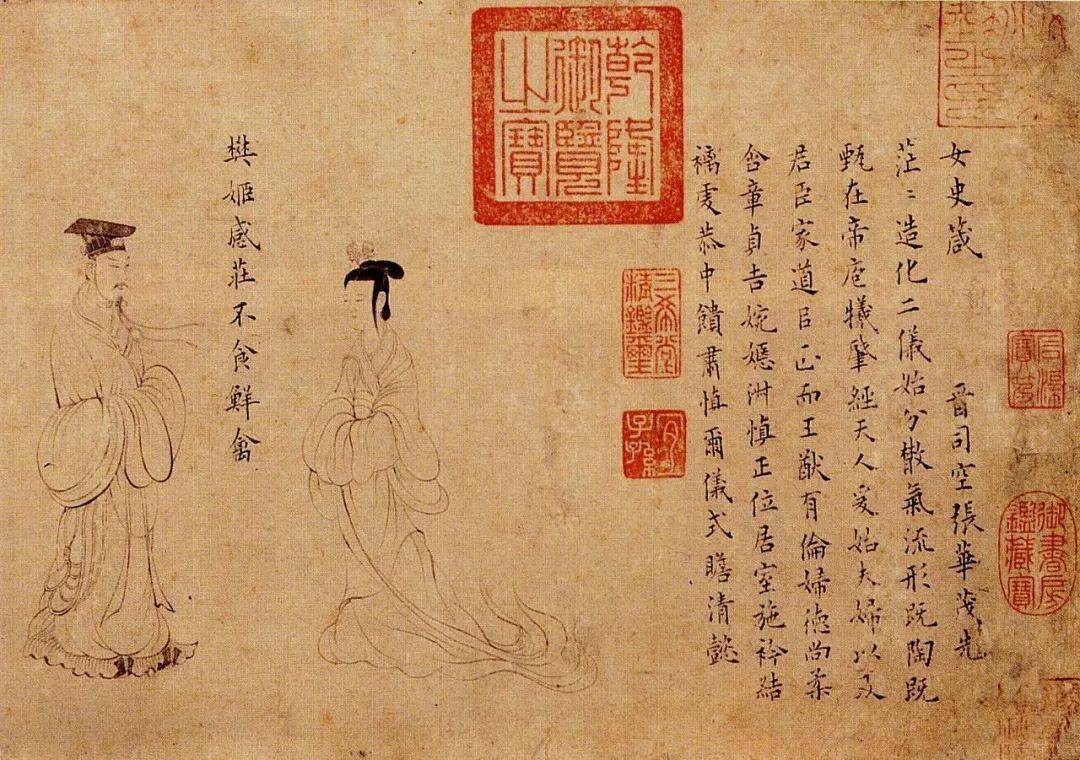 女史箴 晉司空張華茂先
茫〻造化二儀始分散氣流形既陶既
甄在帝庖犧肇經天人爰始夫婦以及
君臣家道㠯正而王猷有倫婦德尚柔
含章貞吉婉嫕淑慎正位居室施衿結
褵虔恭中饋肅慎爾儀式瞻清懿
樊姬感莊不食鮮禽
乾隆
御覽
之寶
三希堂
精鑑璽
宜
子孫
石渠
寶笈
御書房
鑑藏寶